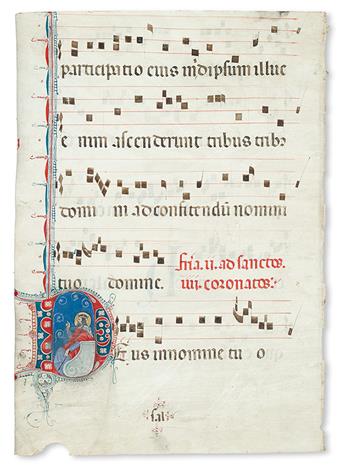 participatio eius inidipsum illuc
e nim ascenderunt tribus tribr
domi ni ad confitendū nomini
tuo domine. fr̃ia. ii. ad sanctos.
iiii. coronatos.
Deus in nomine tu o
sal